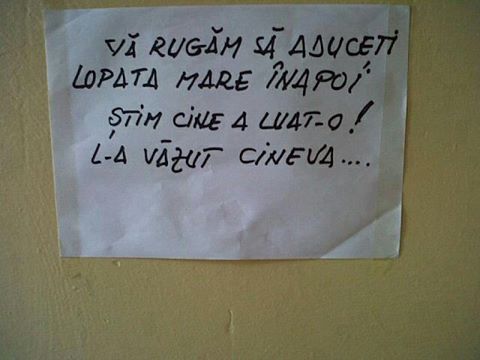 VĂ RUGĂM SĂ ADUCEȚI
LOPATA MARE ÎNAPOI
ȘTIM CINE A LUAT-O!
L-A VĂZUT CINEVA....